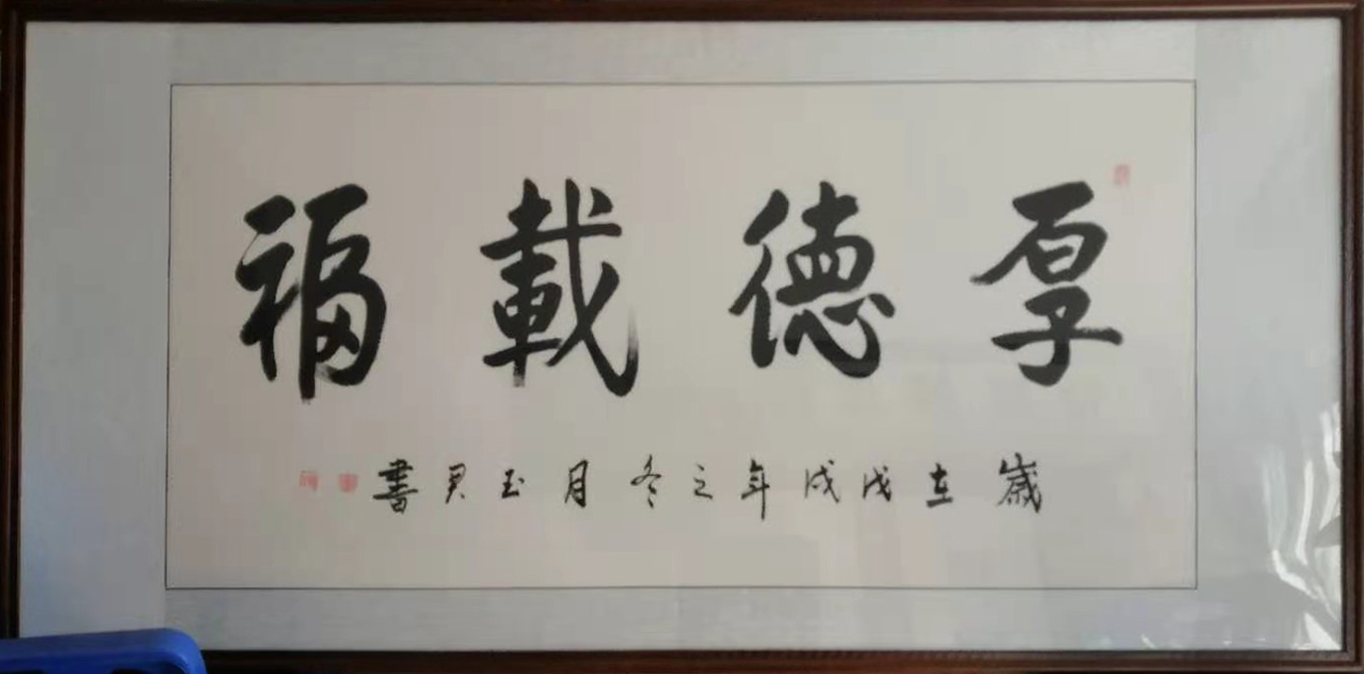 厚德載福
歲在戊戌年之冬月玉君書